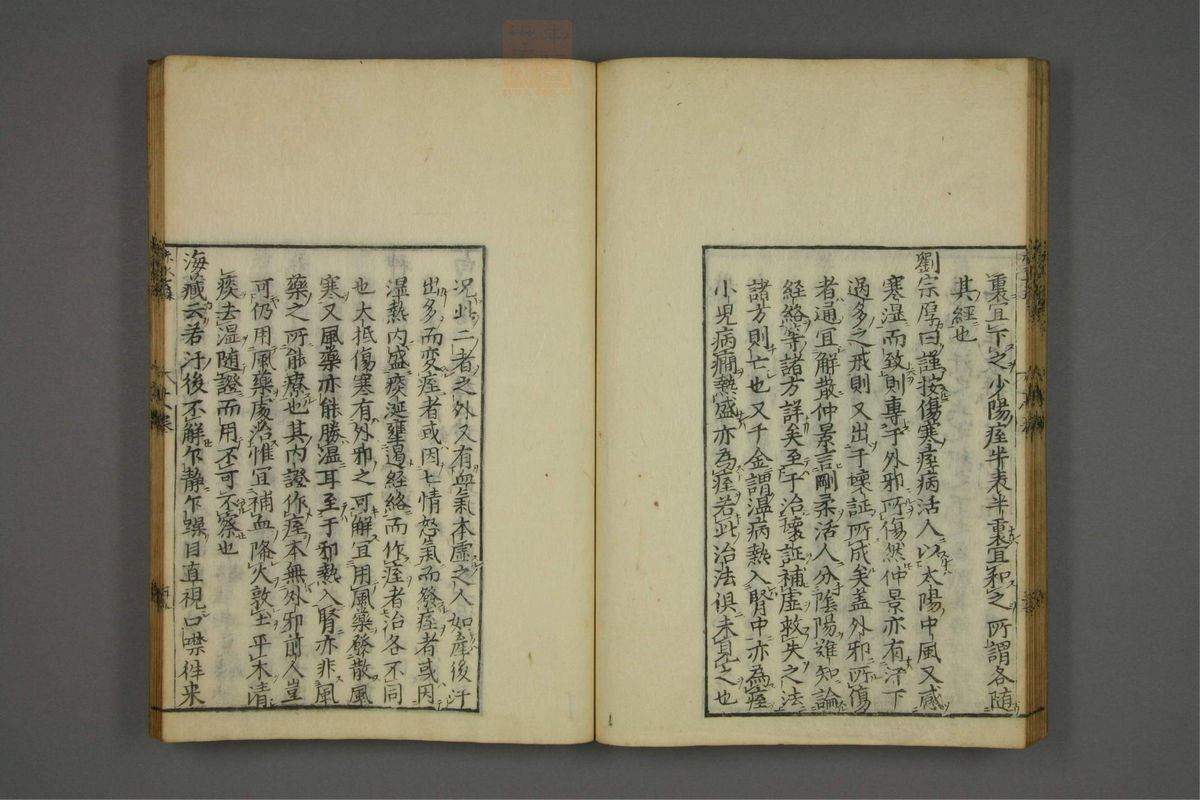 裏宜下之少陽痓半表半裏宜和之所謂各随
其經也
劉宗厚曰謹按傷寒痓病活人以太陽中風又感
寒湿而致則專于外邪所傷然仲景亦有汗下
過多之戒則又出于壊証所成矣盖外邪所傷
者通宜解散仲景言剛柔活人分陰陽雖知論
經絡等諸方詳矣至于治壊証補虚救失之法
諸方則亡也又千金謂温病熱入腎中亦為痓
小児病癇熱盛亦為痓若此治法俱未見之也
况此二者之外又有血氣本虚之人如産後汗
出多而変痓者或因七情怒氣而發痓者或因
湿熱内盛痰涎壅遏經絡而作痓者治各不同
也大抵傷寒有外邪之可解宜用風藥發散風
寒又風藥亦能勝湿耳至于邪熱入腎亦非風
藥之所能療也其内證作痓本無外邪前人豈
可仍用風藥處治惟宜補血降火敦土平木清
痰去湿随證而用不可不察也
海藏云若汗後不解乍静乍躁目直視口噤往来